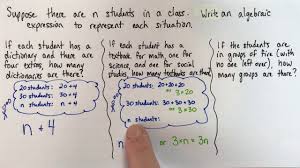 Suppose there are n students in a class. Write an algebraic
expression to represent each situation.
If each student has a
dictionary and there are
four extras, how many
dictionaries are there?
20 students: 20+4
30 students: 30+4
n + 4
If each student has a
textbook for math, one for
science and one for social
studies, how many textbooks are there?
20 students: 20+20+20
or 3×20
30 students: 30+30+30
or 3×30
n students:
n
or 3×n = 3n
If the students are
in groups of five (with
no one left over), how
many groups are there?